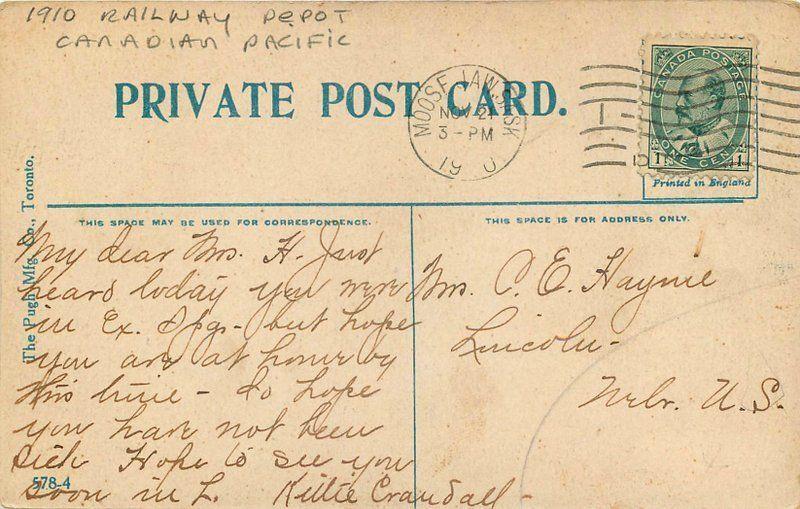 1910 RAILWAY DEPOT
CANADIAN PACIFIC
PRIVATE POST CARD.
MOOSE JAW, SASK
NOV 21
3-PM
19 0
CANADA POSTAGE
ONE CENT
1 1
Printed in England
The Pugh Mfg. Co., Toronto.
THIS SPACE MAY BE USED FOR CORRESPONDENCE.
My dear Mrs. H. Just
heard today you were
in Ex. Spgs. but hope
you are at home by
this time - do hope
you have not been
sick Hope to see you
soon in L. Kittie Crandall -
578-4
THIS SPACE IS FOR ADDRESS ONLY.
Mrs. C. E. Haynie
Lincoln -
Nebr. U.S.